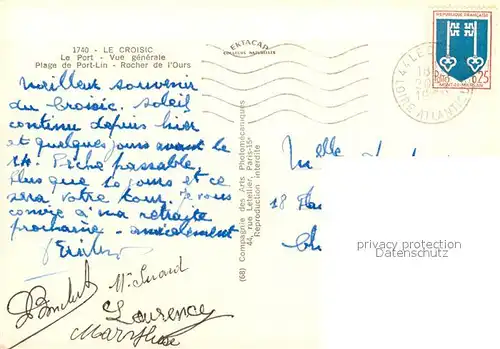 1740 - LE CROISIC
Le Port - Vue générale
Plage de Port-Lin - Rocher de l'Ours
EKTACAD
REPUBLIQUE FRANÇAISE
0,25
MONT-DE-MARSAN
44 LE
LOIRE ATLANTIQUE
Meilleur souvenir
du Croisic. Soleil
continu depuis hier
et quelques jours avant le
14. Pêche passable,
Plus que 10 jours et ce
sera votre tour. Je vous
convie à ma retraite
prochaine - amicalement
Laurence
(68) Compagnie des Arts Photomécaniques
44, rue Letellier, Paris-15e
Reproduction interdite
Melle
18
privacy protection
Datenschutz